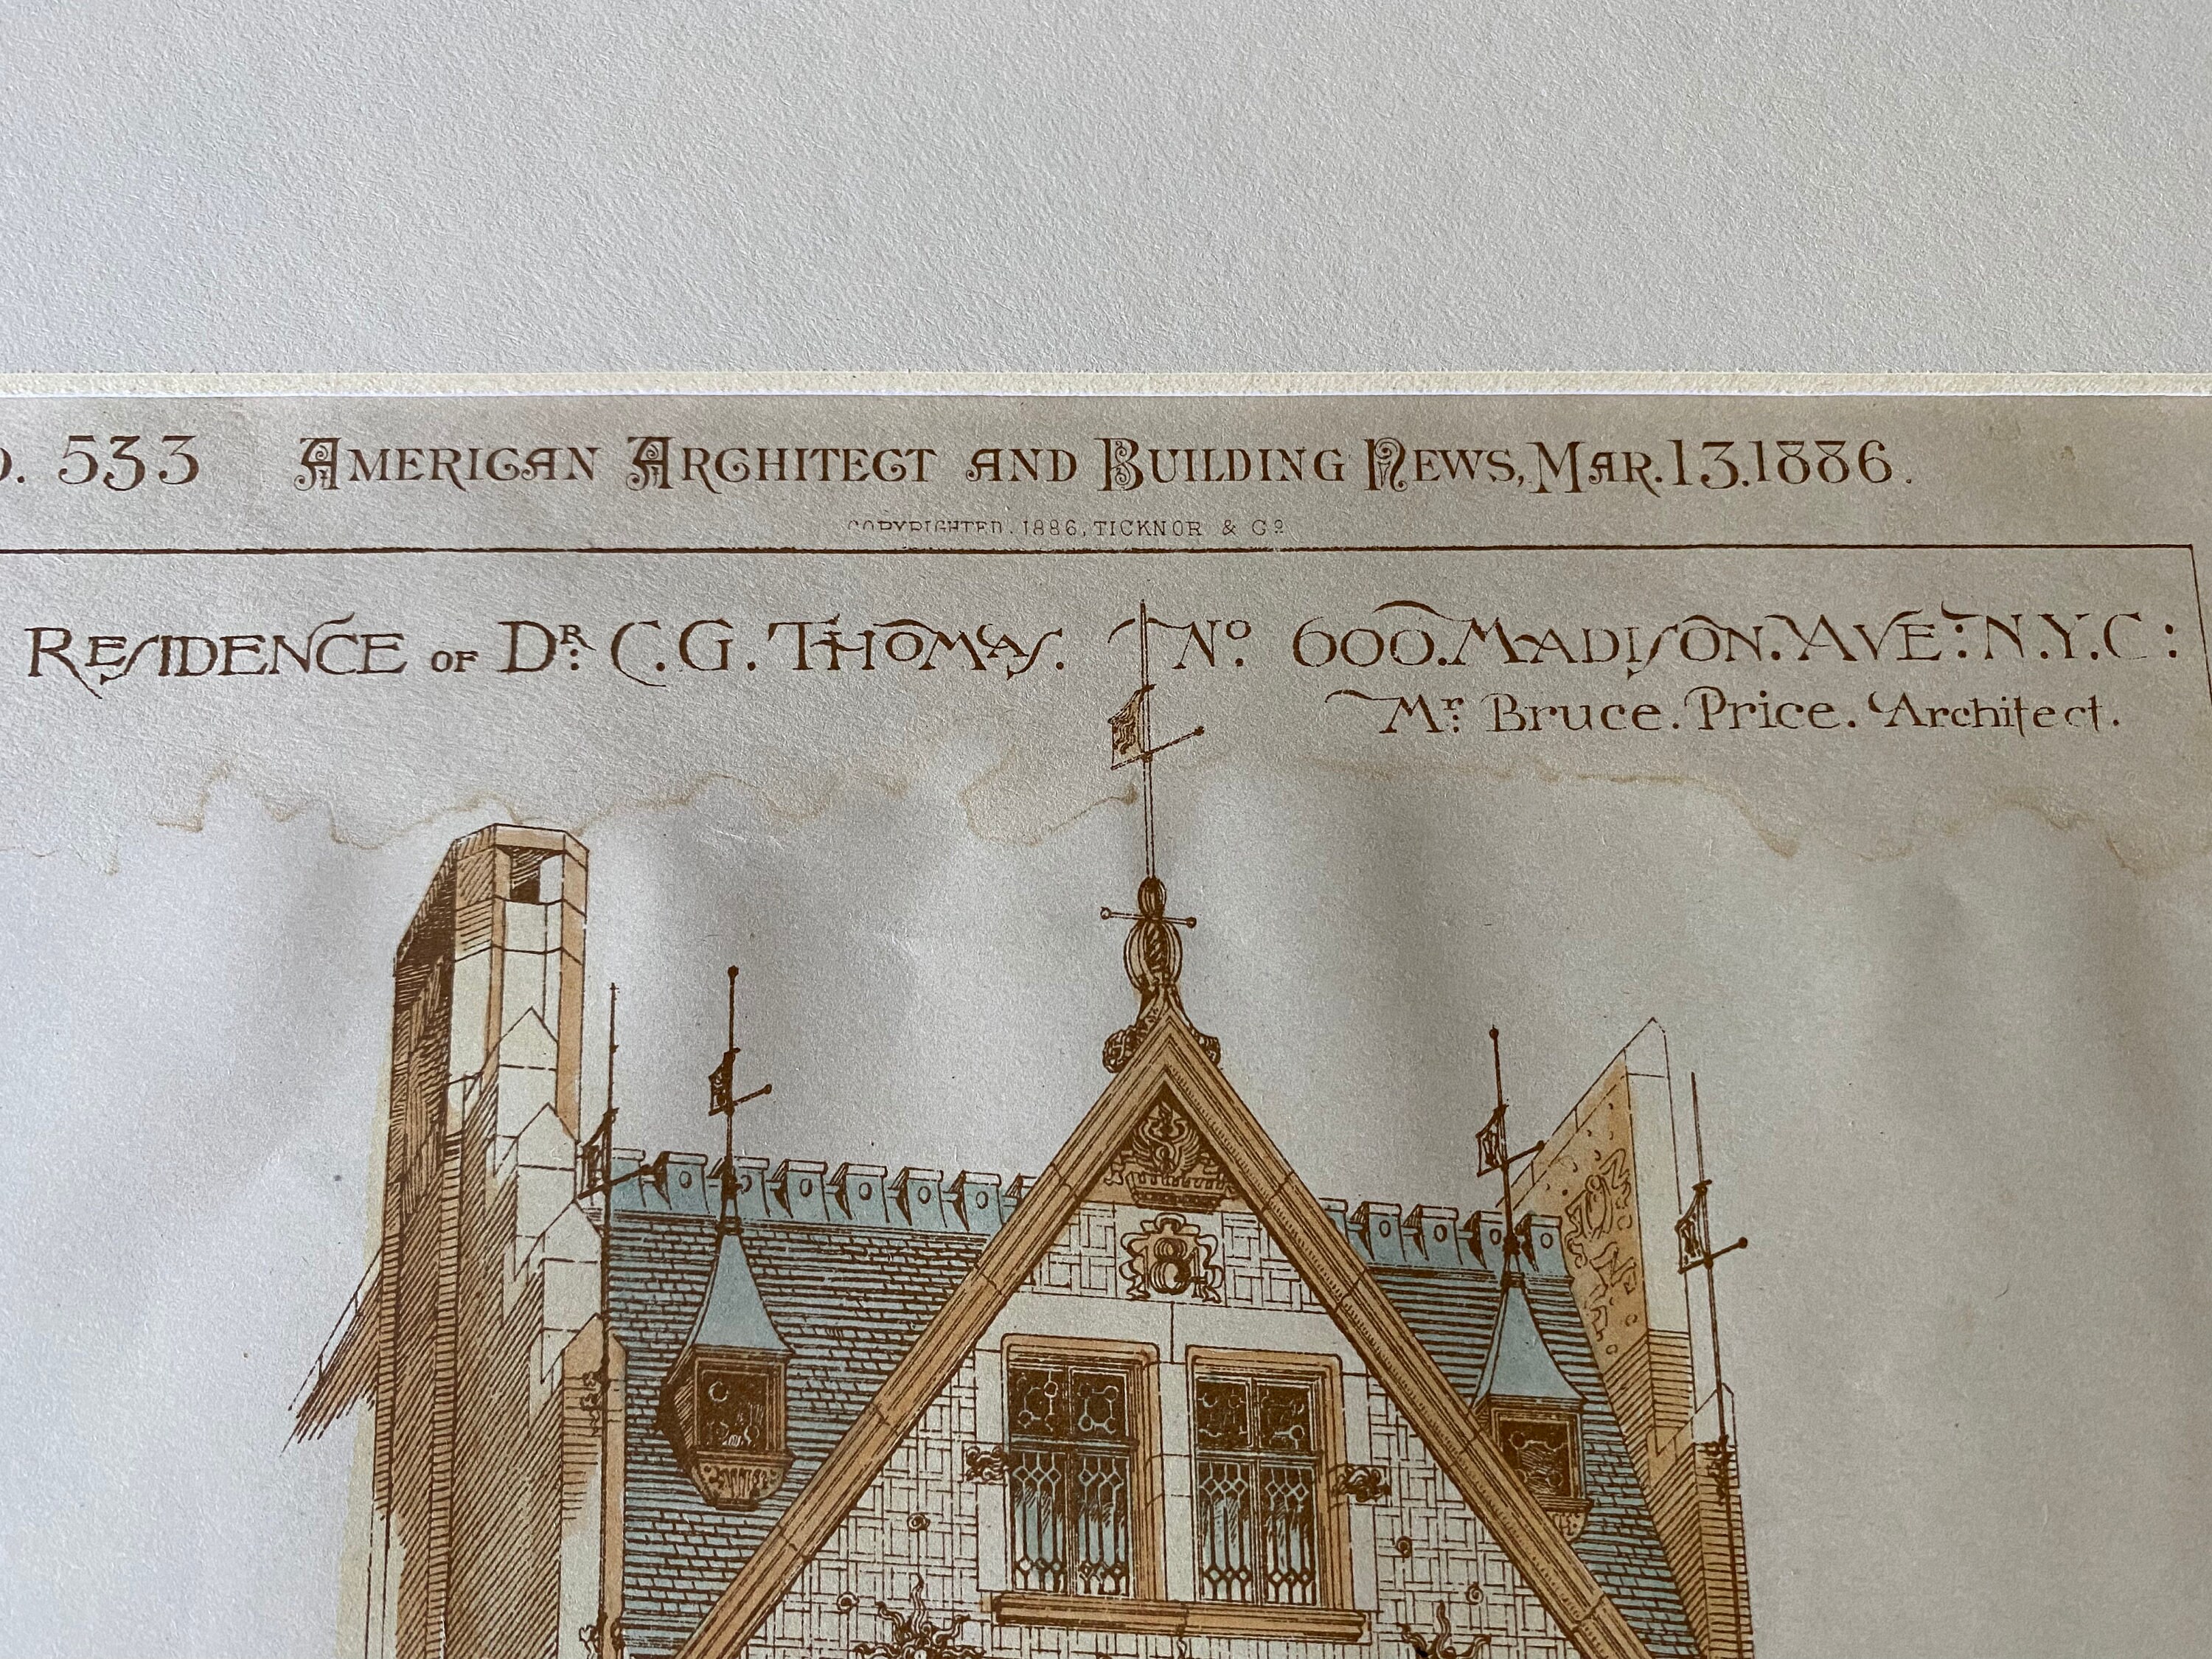 . 533 AMERICAN ARCHITECT AND BUILDING NEWS, MAR. 13. 1886.
COPYRIGHTED. 1886, TICKNOR & Cº
RESIDENCE OF DR: C. G. THOMAS. Nº. 600. MADISON. AVE: N.Y.C:
Mr: Bruce. Price. Architect.